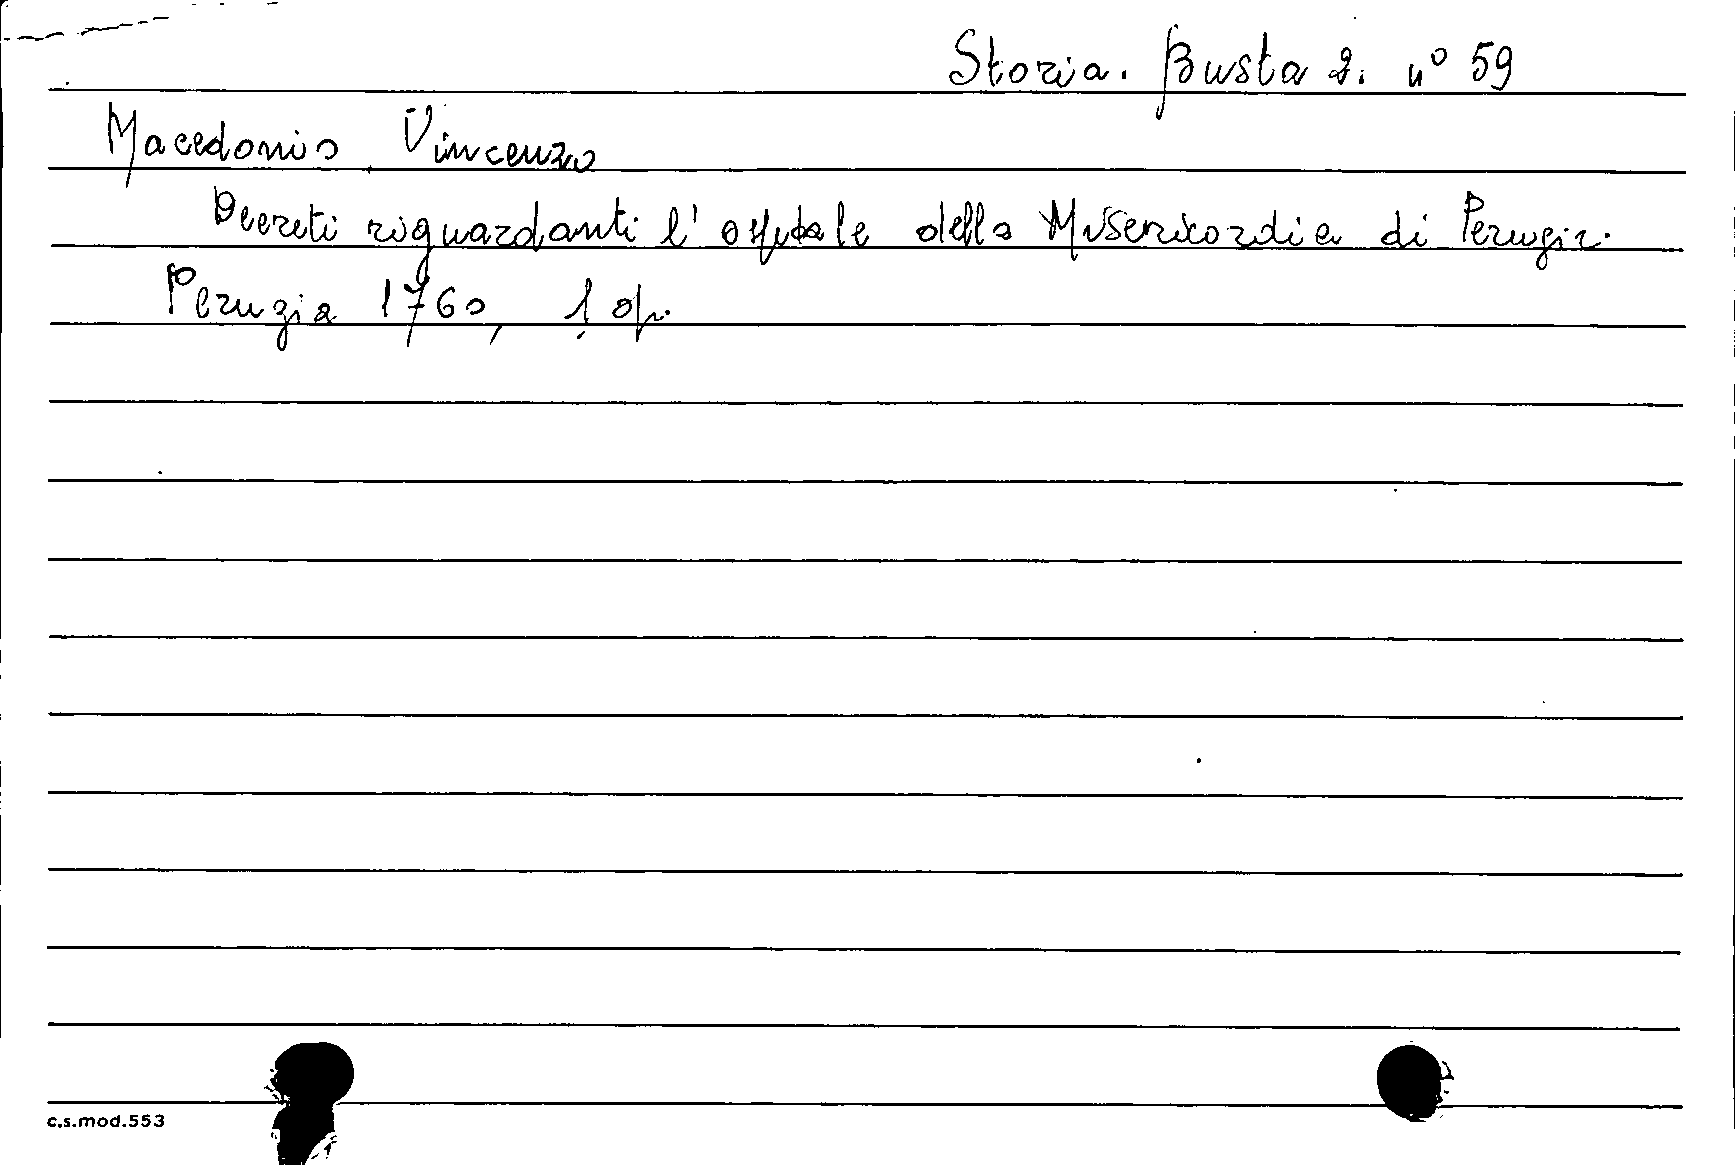 Storia. Busta 2. n° 59
Macedonio, Vincenzo
Decreti riguardanti l'ospedale della Misericordia di Perugia.
Perugia 1760, 1 op.
c.s.mod.553